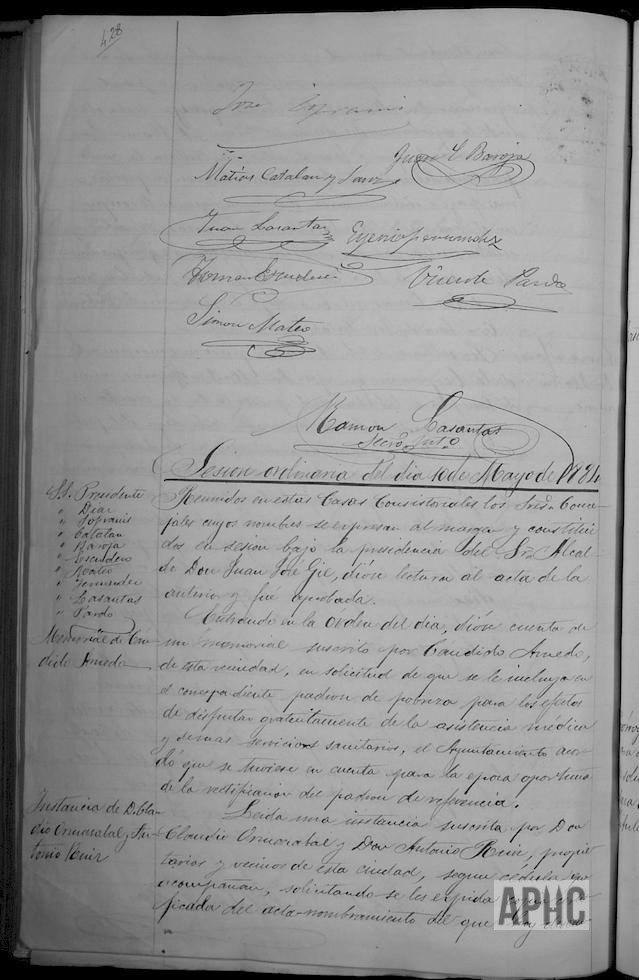 428
Jose Sopranis
Juan C Baroja
Matias Catalan y Sanz
Juan Casantas
Eugenio Fernandez
Roman Escudero
Vicente Pardo
Simon Mateo
Ramon Casantas
Secro. Int.o
Sesion ordinaria del dia 10 de Mayo de 1884
SS. Presidente
" Diaz
" Sopranis
" Catalan
" Baroja
" Escudero
" Mateo
" Fernandez
" Casantas
" Pardo
Reunidos en estas Casas Consistoriales los Sres. Conce-
jales cuyos nombres se expresan al margen y constitui-
dos en sesion bajo la presidencia del Sr. Alcal-
de Don Juan José Gil, dióse lectura al acta de la
anterior y fue aprobada.
Memorial de Can-
dido Arnedo
Entrando en la orden del dia, dióse cuenta de
un memorial suscrito por Candido Arnedo,
de esta vecindad, en solicitud de que se le incluya en
el correspondiente padron de pobreza para los efectos
de disfrutar gratuitamente de la asistencia médica
y demas servicios sanitarios, el Ayuntamiento acor-
dó que se tuviese en cuenta para la epoca oportuna
de la rectificacion del padron de referencia.
Instancia de D. Clau-
dio Ormazabal y An-
tonio Ruiz
Leida una instancia suscrita por Don
Claudio Ormazabal y Don Antonio Ruiz, propie-
tarios y vecinos de esta ciudad, segun cédula que
acompañan, solicitando se les expida copia certi-
ficada del acta-nombramiento del que hoy
APHC